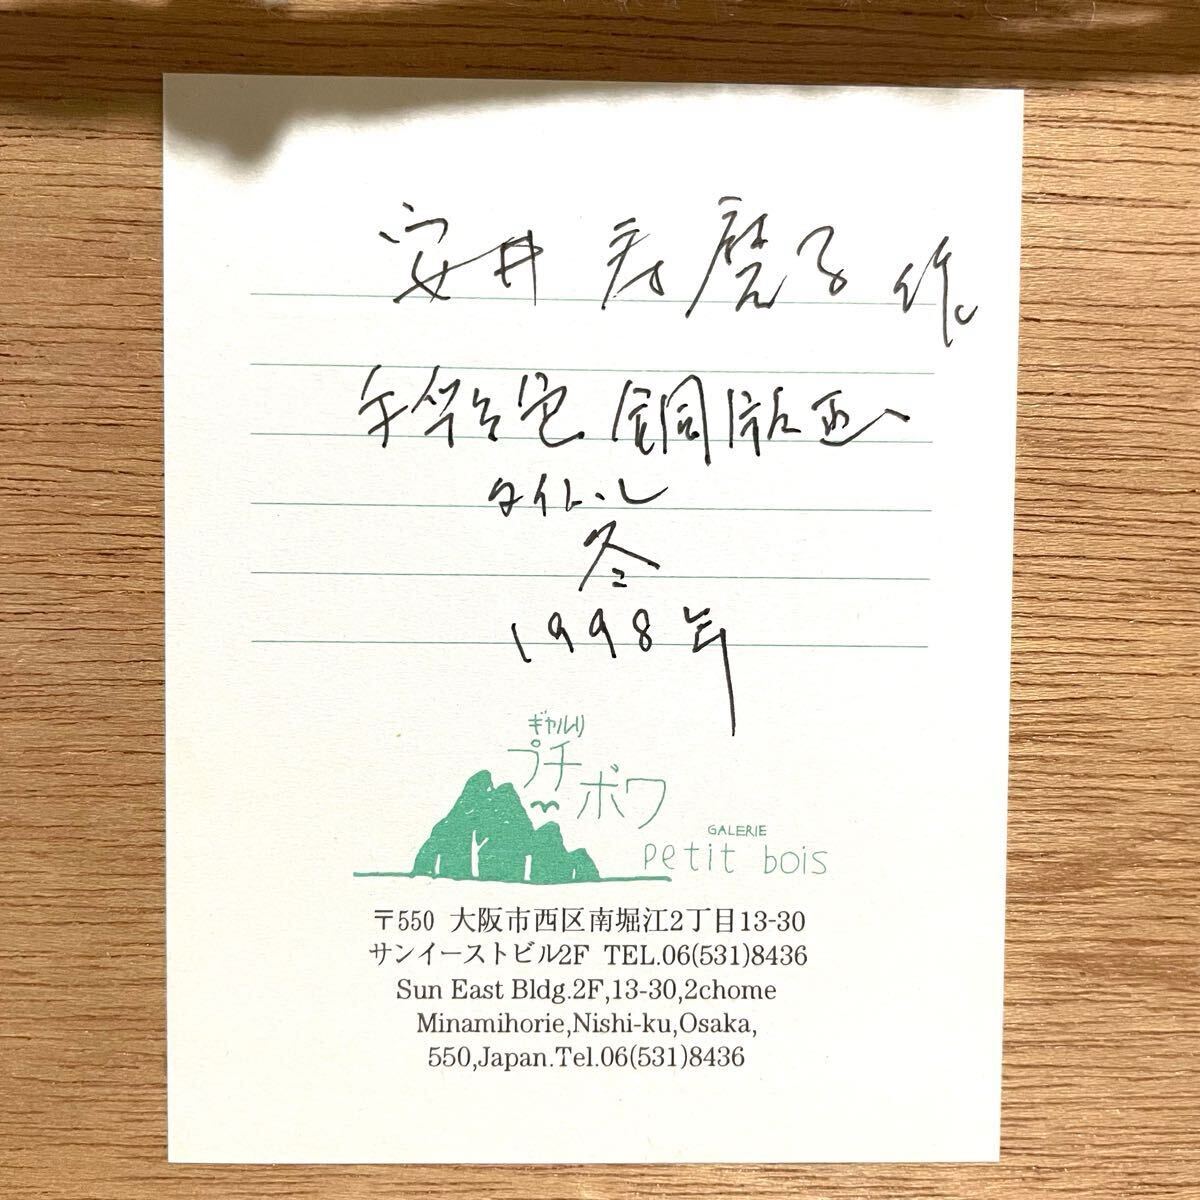 安井寿磨子作。
手彩色銅版画
タイトル
冬
1998年
ギャルリ
プチ
ボワ
GALERIE
petit bois
〒550 大阪市西区南堀江2丁目13-30
サンイーストビル2F TEL.06(531)8436
Sun East Bldg.2F,13-30,2chome
Minamihorie,Nishi-ku,Osaka,
550,Japan.Tel.06(531)8436